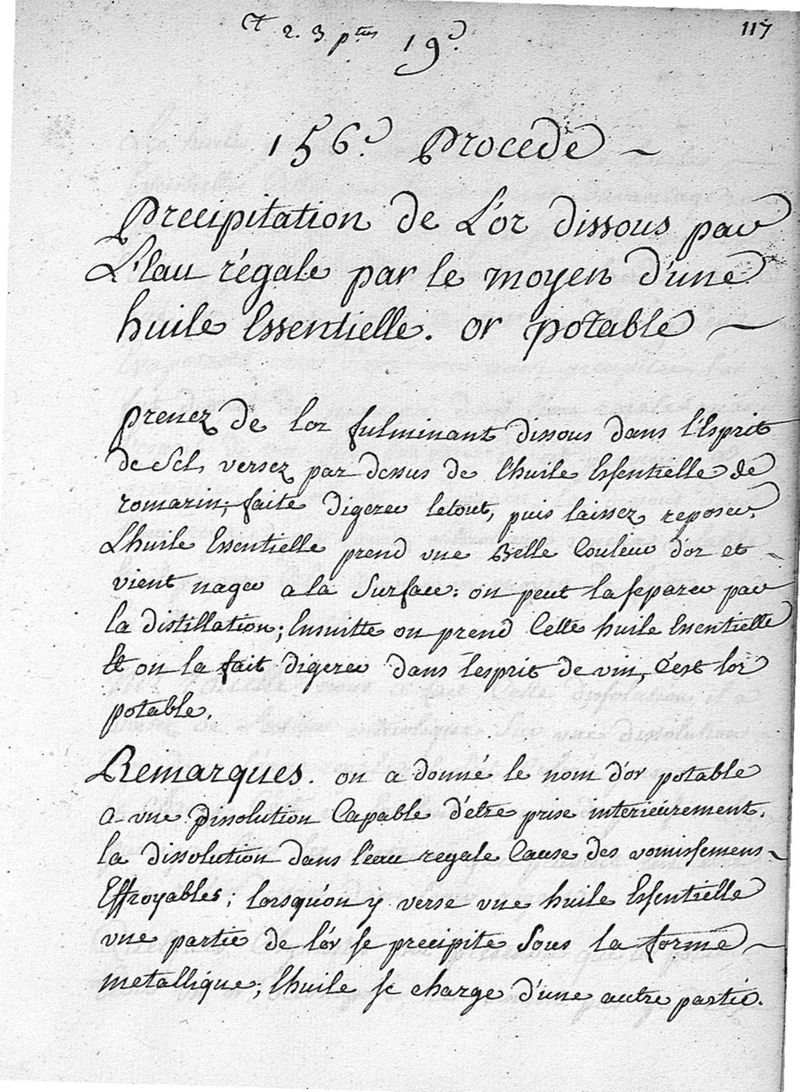 Ct 2. 3 ptes 19e.
117
156e. Procede
Precipitation de L'or dissous par
L'Eau régale par le moyen d'une
huile Essentielle. or potable
prenez de l'or fulminant dissous dans l'Esprit
de sel, versez par dessus de l'huile Essentielle de
romarin, faite digerer letout, puis laissez reposer.
L'huile Essentielle prend une Belle Couleur d'or et
vient nager a la Surface: on peut la separer par
la distillation; Ensuitte on prend Cette huile Essentielle
Et on la fait digerer dans l'esprit de vin, C'est l'or
potable.
Remarques. on a donné le nom d'or potable
a une Dissolution Capable d'étre prise interieurement.
la dissolution dans l'eau regale Cause des vomissemens
Effroyables; lorsqu'on y verse une huile Essentielle
une partie de l'or se precipite Sous la forme
metallique; l'huile se charge d'une autre partie.